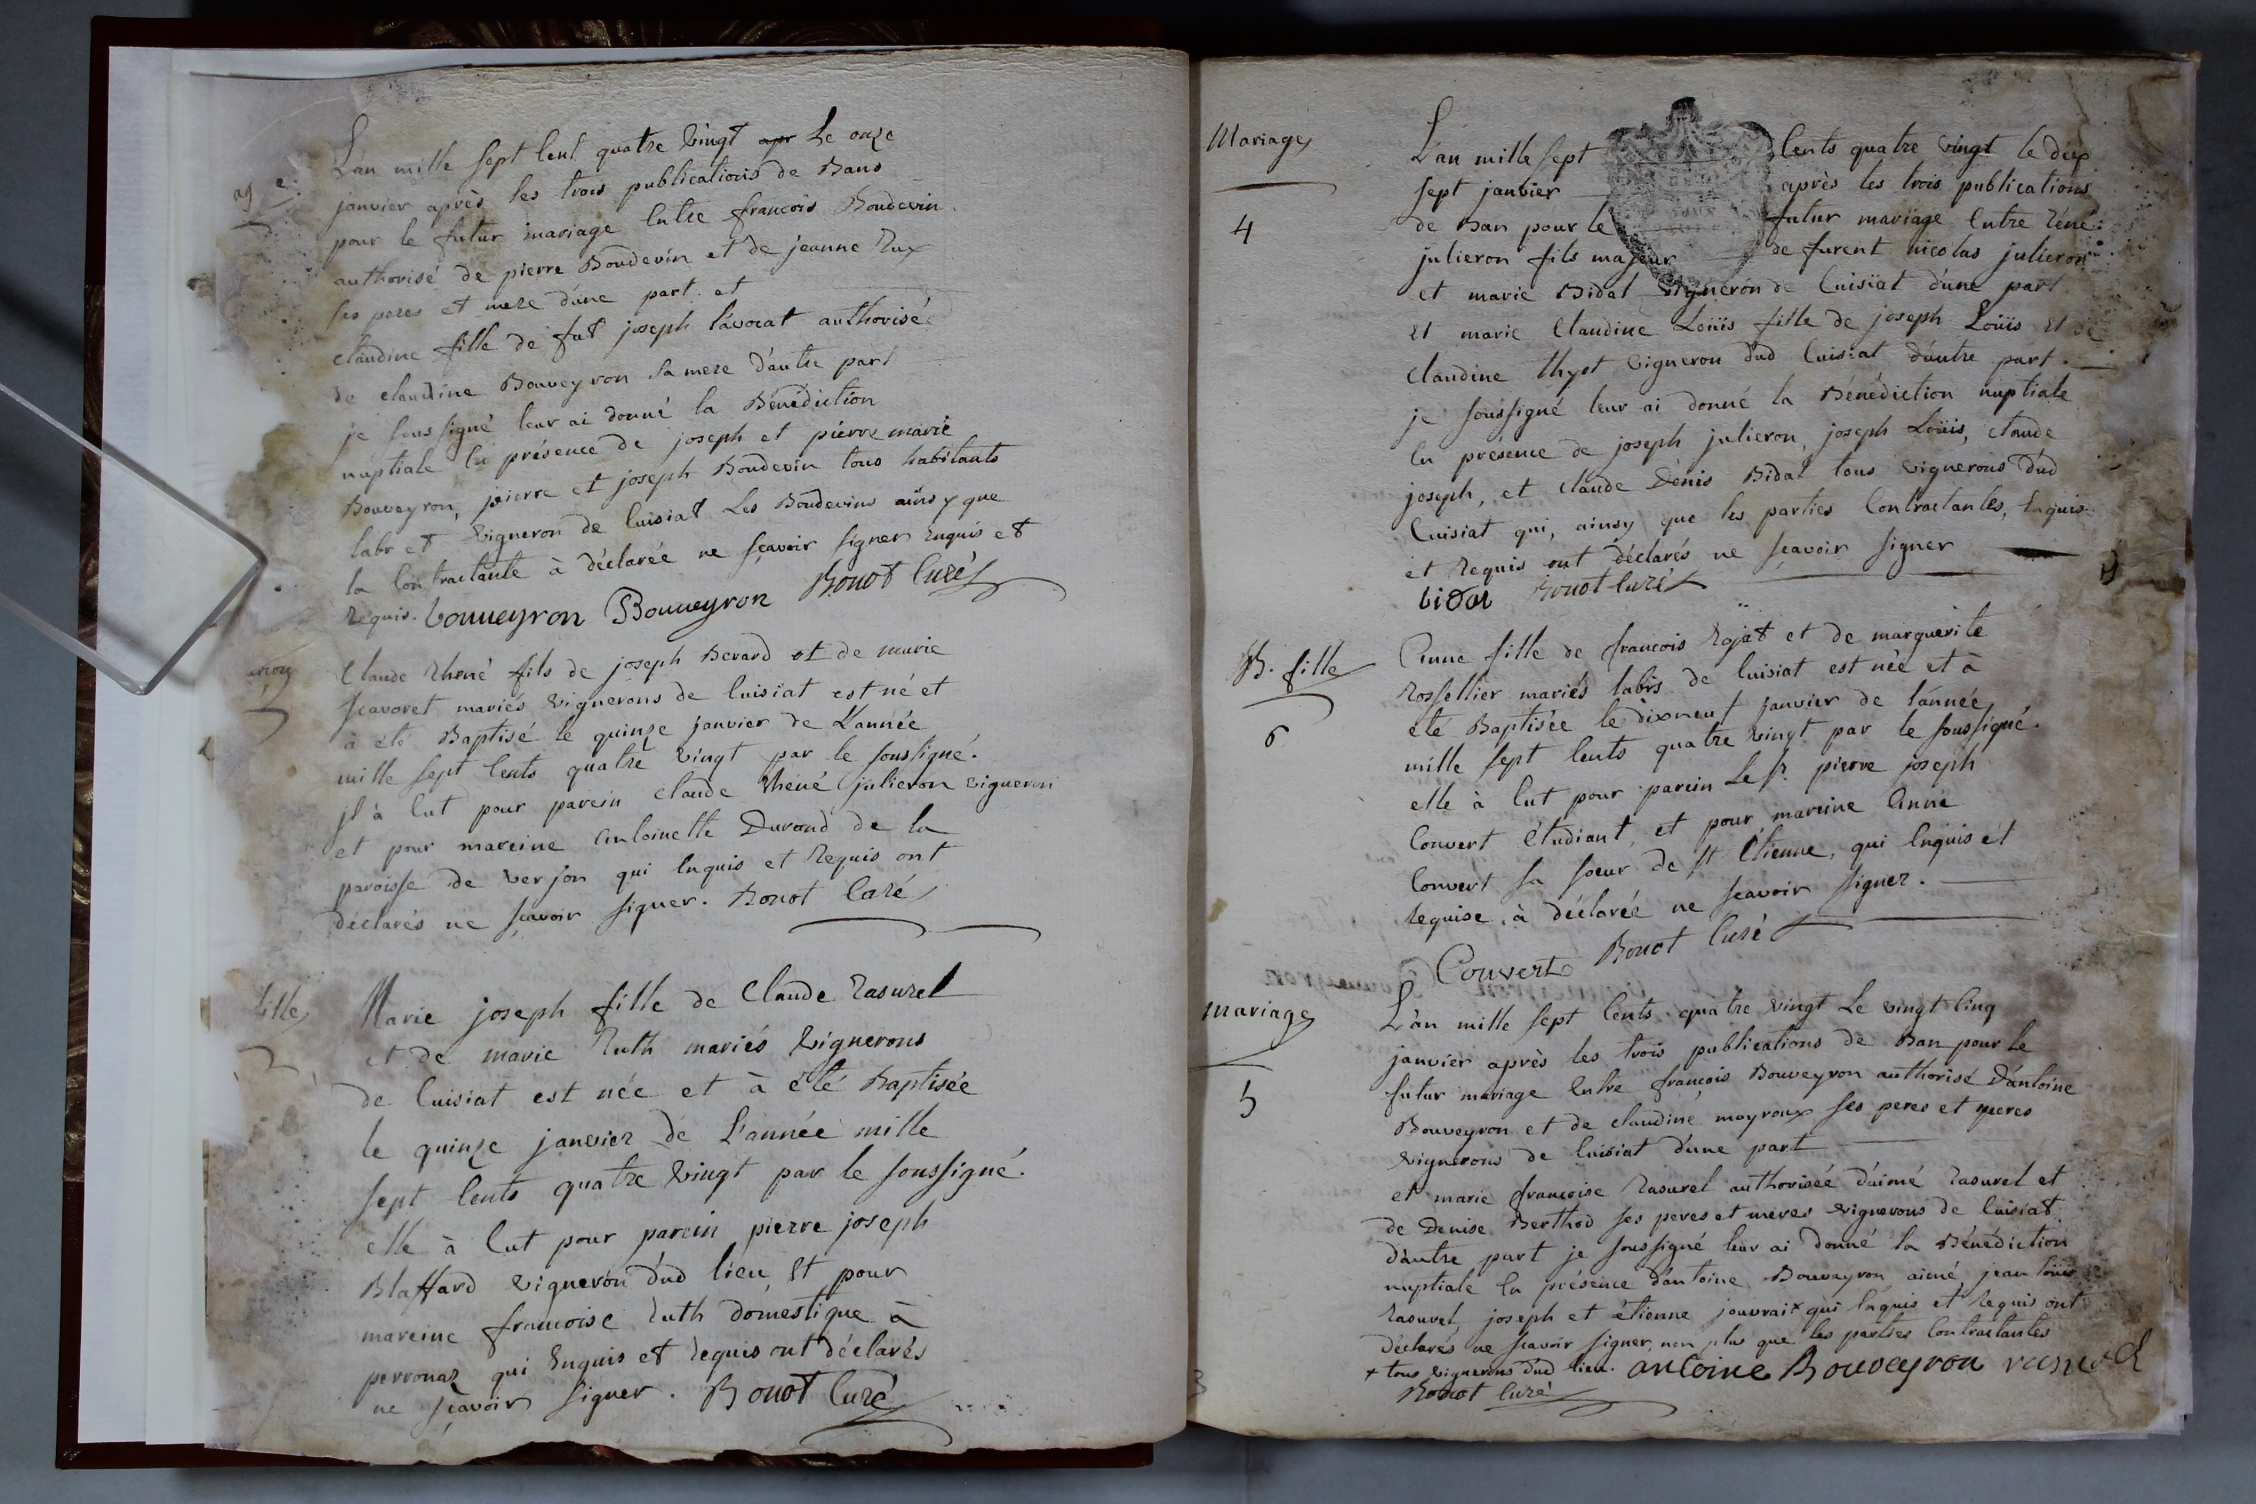 L'an mille sept cent quatre vingt Le onze
janvier après les trois publications de Bans
pour le futur mariage entre françois Boudevin
authorisé de pierre Boudevin et de jeanne Rux
ses peres et mere d'une part et
claudine fille de fut joseph l'avocat authorisée
de claudine Bouveyron sa mere d'autre part
je sous signé leur ai donné la Bénédiction
nuptiale en présence de joseph et pierre marie
Bouveyron, pierre et joseph Boudevin tous habitants
labr et vigneron de Cuisiat Les Boudevins ainsy que
la contractante à déclarée ne sçavoir signer enquis et
requis. bouueyron Bouueyron Bonot Curé
Claude Rhené fils de joseph Berard et de marie
Scavoret mariés vignerons de Cuisiat est né et
à été Baptisé le quinze janvier de L'année
mille sept cents quatre vingt par le soussigné.
jl à eut pour parein claude Rhené julieron vigneron
et pour mareine antoinette Durand de la
paroisse de verjon qui enquis et requis ont
déclarés ne sçavoir signer. Bonot Curé
fille
Marie joseph fille de Claude rasurel
et de marie Ruth mariés vignerons
de Cuisiat est née et à été Baptisée
le quinze janvier de L'année mille
sept cents quatre vingt par le soussigné.
elle à eut pour parein pierre joseph
Blaffard vigneron dud lieu et pour
mareine françoise Ruth domestique à
perronaz qui enquis et requis ont déclarés
ne sçavoir signer. Bonot Curé
Mariage
4
L'an mille sept cents quatre vingt le dix
sept janvier après les trois publications
de Ban pour le futur mariage entre réné
julieron fils majeur de furent nicolas julieron
et marie Bidal vigneron de Cuisiat d'une part
et marie Claudine Loüis fille de joseph Loüis et de
Claudine thyot vigneron dud Cuisiat d'autre part.
je soussigné leur ai donné la Bénédiction nuptiale
en présence de joseph julieron, joseph Loüis, claude
joseph, et claude Denis Bidal tous vignerons dud
Cuisiat qui, ainsy que les parties contractantes, enquis
et requis ont déclarés ne sçavoir signer
bidal Bonot Curé
B. fille
6
Anne fille de françois Rojat et de marguerite
Rossellier mariés labrs de Cuisiat est née et à
été Baptisée le dixneuf janvier de l'année
mille sept cents quatre vingt par le soussigné.
elle à eut pour parein Le sr. pierre joseph
Convert étudiant, et pour mareine anne
Convert sa soeur de st Etienne, qui enquis et
requise, à déclarée ne sçavoir signer.
Convert Bonot Curé
Mariage
5
L'an mille sept cents quatre vingt Le vingt cinq
janvier après les trois publications de Ban pour Le
futur mariage entre françois Bouveyron authorisé d'antoine
Bouveyron et de claudine moyroux ses peres et meres
vignerons de Cuisiat d'une part
et marie françoise rasurel authorisée d'aimé rasurel et
de Denise Berthod ses peres et meres vignerons de Cuisiat
d'autre part je soussigné leur ai donné la Bénédiction
nuptiale en présence d'antoine Bouveyron, aimé, jean loüis
rasurel, joseph et étienne jouvrai + qui enquis et requis ont
déclarés ne sçavoir signer, non plus que les parties contractantes
+ tous vignerons dud lieu. antoine Bouveyron rasurel
Bonot Curé